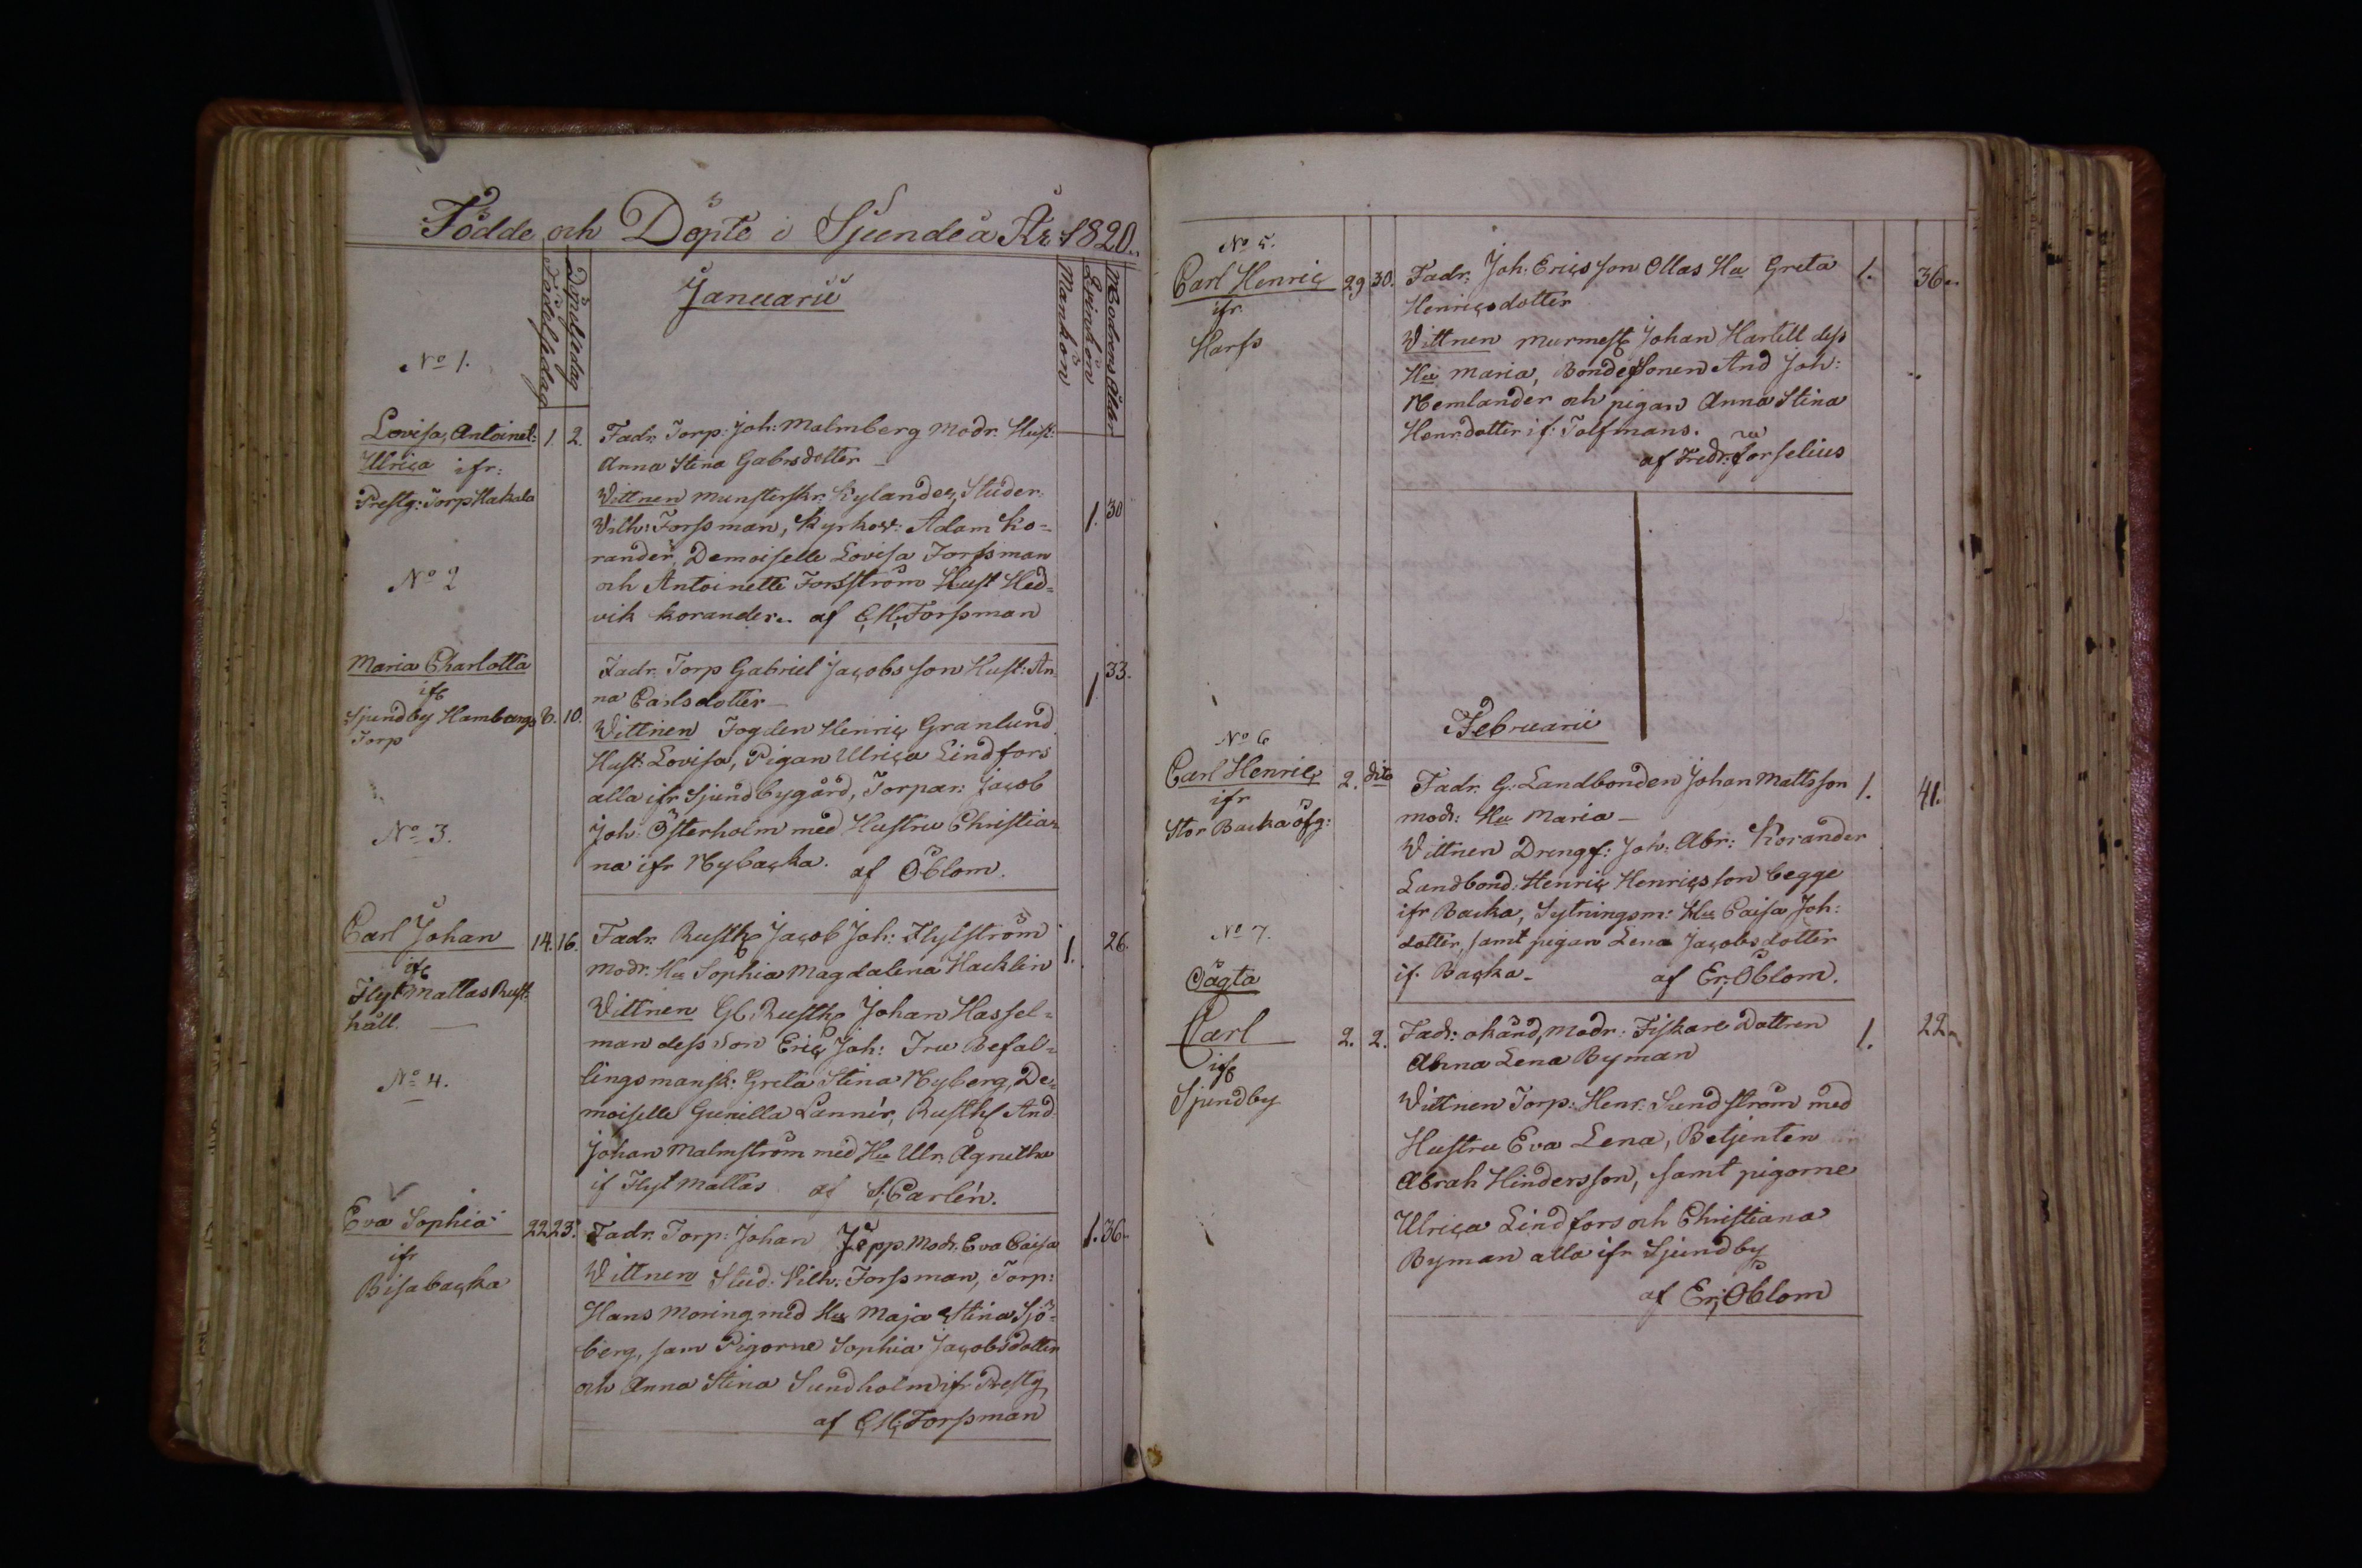 Födde och Döpte i Sjundeå År 1820.
Födelsedag
Döpelsedag
Januarii
Mankön
Qvinkön
Modrens ålder
No 1.
Lovisa, Antoinet: 1. 2. Fadr. Torp: Joh: Malmberg Modr. Hust:
Ulrica ifr: Anna Stina Gabrsdotter
Prestg: Torp Kakala Vittnen Munsterskr. Kylander, Studer.
Vilh: Forssman, Kyrkov: Adam Ko= 1. 30
rander, Demoiselle Lovisa Forssman
No 2 och Antoinette Forsström Hust Hed=
vik Korander. af C: H: Forssman
Maria Charlotta Fadr. Torp Gabriel Jacobsson Hust: An 1 33.
ifr na Carlsdotter
Sjundby Hambergs 8. 10. Vittnen Fogden Henric Granlund
Torp Hust: Lovisa, Pigan Ulrica Lindfors
alla ifr Sjundbygård, Torpar: Jacob
No 3. Joh: Österholm med Hustru Christia=
na ifr Nybacka. af Öblom.
Carl Johan 14. 16. Fadr. Rusth Jacob Joh: Flytström 1. 26.
ifr Modr. Hu Sophia Magdalena Hacklin
Flyt Mattas Rust Vittnen Gl. Rusth Johan Hassel=
håll. man dess Son Eric Joh: Fru Befal=
No 4. lingsmansk: Greta Stina Nyberg, De=
moiselle Gunilla Lannér, Rusth And.
Johan Malmström med Hu Ulr. Agnetha
if Flyt Mattas af S. Carlén.
Eva Sophia 22 23. Fadr. Torp: Johan Jepp Modr. Eva Caisa 1. 36.
ifr Vittnen Stud. Vilh: Forssman, Torp:
Bisabacka Hans Moring med Hu Maja Stina Sjö=
berg, sam Pigorne Sophia Jacobsdotter
och Anna Stina Sundholm ifr Prestg
af C: H: Forssman
No 5.
Carl Henric 29 30. Fadr. Joh. Ericsson Ollas Hu Greta 1. 36.
ifr Henricsdotter
Harss Vittnen Murmest Johan Hartell dess
Hu Maria, Bondesonen And Joh:
Nemlander och pigan Anna Stina
Henr.dotter if. Tolfmans.
af Fredr. Forselius
Februarii
No 6
Carl Henric 2. dito Fadr. G: Landbonden Johan Mattsson 1. 41.
ifr modr: Hu Maria
Stor Backa öfg: Vittnen Drengf: Joh: Abr: Korander
Landbond: Henric Henricsson begge
ifr Backa, Sytningsm: Hu Caisa Joh:
No 7. dotter, samt pigan Lena Jacobsdotter
Oägta if. Backa. af Er: Öblom.
Carl 2. 2. Fadr: okänd, Modr. Fiskare Dottren 1. 22
ifr Anna Lena Byman
Sjundby Vittnen Torp: Henr: Sundström med
Hustru Eva Lena, Betjenten
Abrah Hindersson, samt pigorne
Ulrica Lindfors och Christiana
Byman alla ifr Sjundby
af Er: Öblom